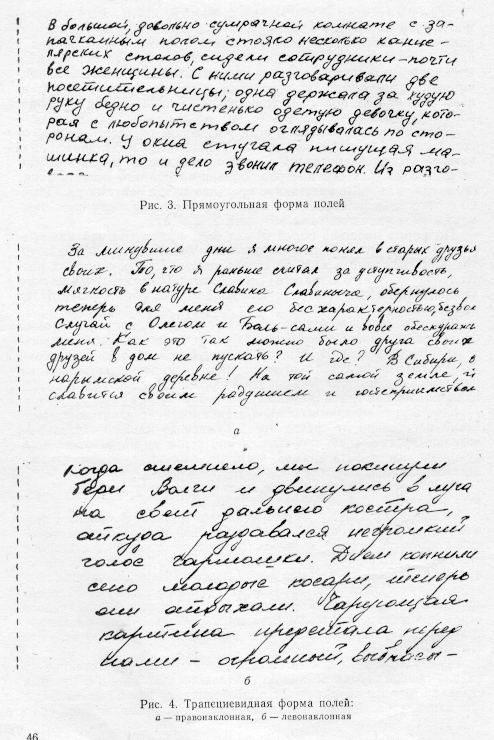 В большой, довольно сумрачной комнате с за-
пачканным полом стояло несколько канце-
лярских столов, сидели сотрудники - почти
все женщины. С ними разговаривали две
посетительницы; одна держала за худую
руку бедно и чистенько одетую девочку, кото-
рая с любопытством оглядывалась по сто-
ронам. У окна стучала пишущая ма-
шинка, то и дело звонил телефон. Из разго-
Рис. 3. Прямоугольная форма полей
За минувшие дни я многое понял в старых друзья
своих. То, что я раньше считал за уступчивость,
мягкость в натуре Славина Славиныча, обернулось
теперь для меня его бесхарактерностью, безвол
Случай с Олегом и Баль-сами и вовсе обескураж
меня. Как это так можно было друга своих
друзей в дом не пускать? И где? В Сибири, в
нарымской деревне! На той самой земле,
славится своим радушием и гостеприимством
а
Когда стемнело, мы покинули
берег Волги и двинулись в луга
на свет дальнего костра,
откуда раздавался негромкий
голос гармошки. Днем копнили
сено молодые косари, теперь
они отдыхали. Чарующая
картина предстала перед
нами - огромный, выбрасы-
б
Рис. 4. Трапециевидная форма полей:
а — правонаклонная, б — левонаклонная
46